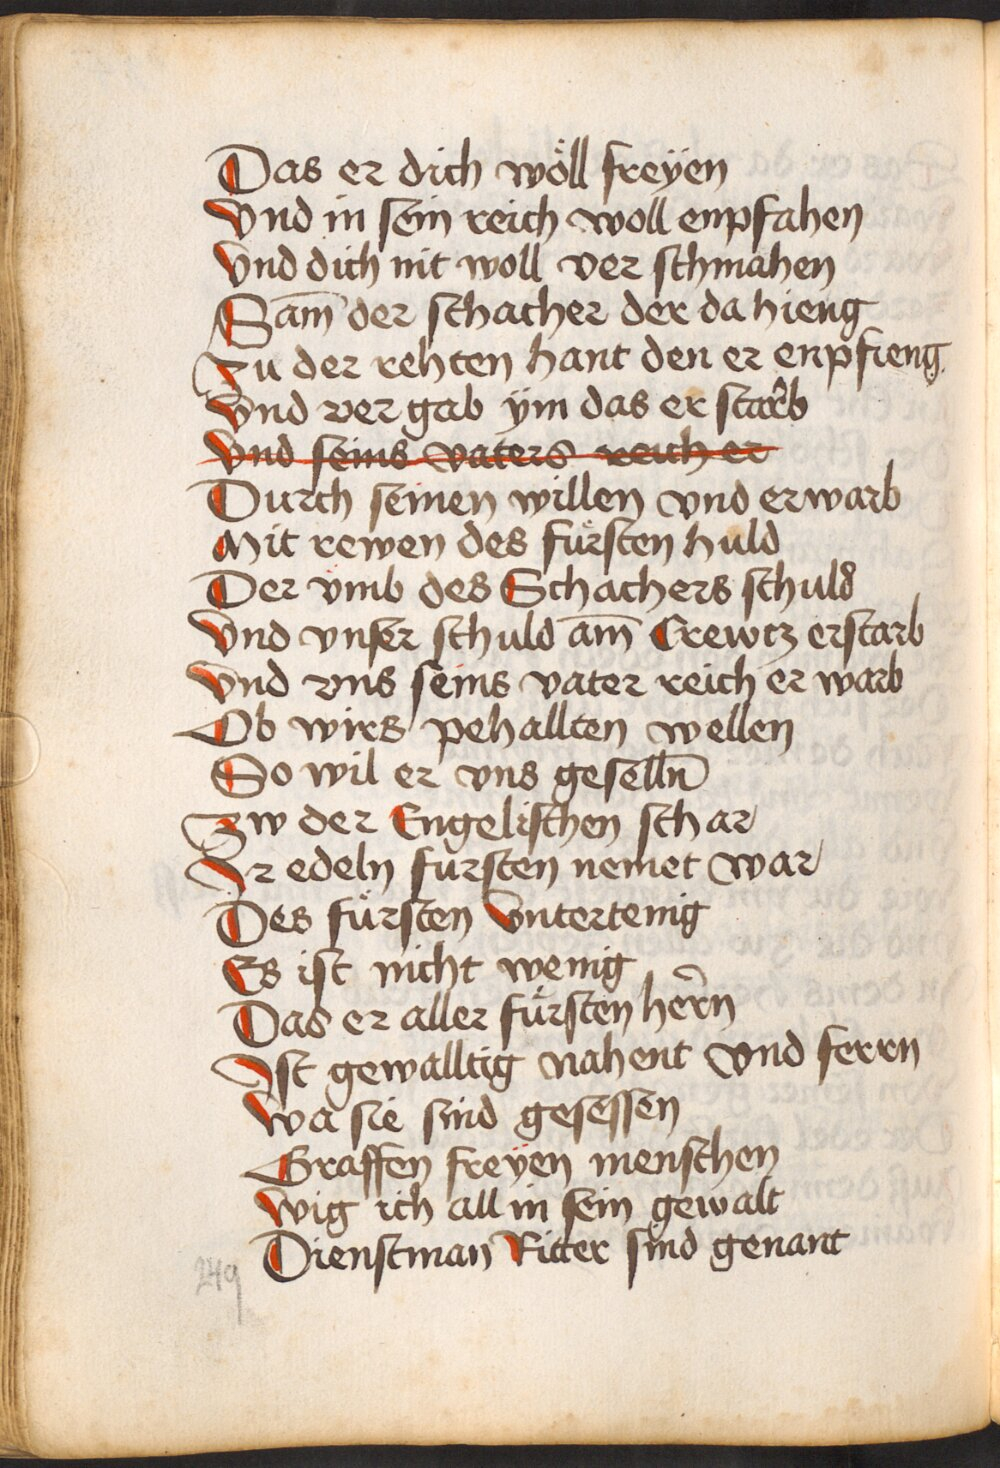 Das er dich wöll freÿen
Vnd in sein reich woll enpfahen
Vnd dich nit woll ver schmahen
Sam̅ der schacher der da hieng
Zu der rehten hant den er enpfieng
Vnd ver gab ÿm das er starb
Vnd seins vaters reich er
Durch seinen willen vnd erwarb
Mit rewen des fürsten huld
Der vmb des Schachers schuld
Vnd vnser schuld am̅ Crewcz erstarb
Vnd vns seins vater reich er warb
Ob wirs pehallten wellen
So wil er vns geselln̅
Zw der Engelischen schar
Ir edeln fursten nemet war
Des fürsten Vntertenig
Es ist nicht wenig
Das er aller fürsten hern
Ist gewalltig nahent vnd ferrn
Wa sie sind gesessen
Graffen freÿen menschen
Wig ich all in sein gewalt
Dienstman Ritter sind genant
249